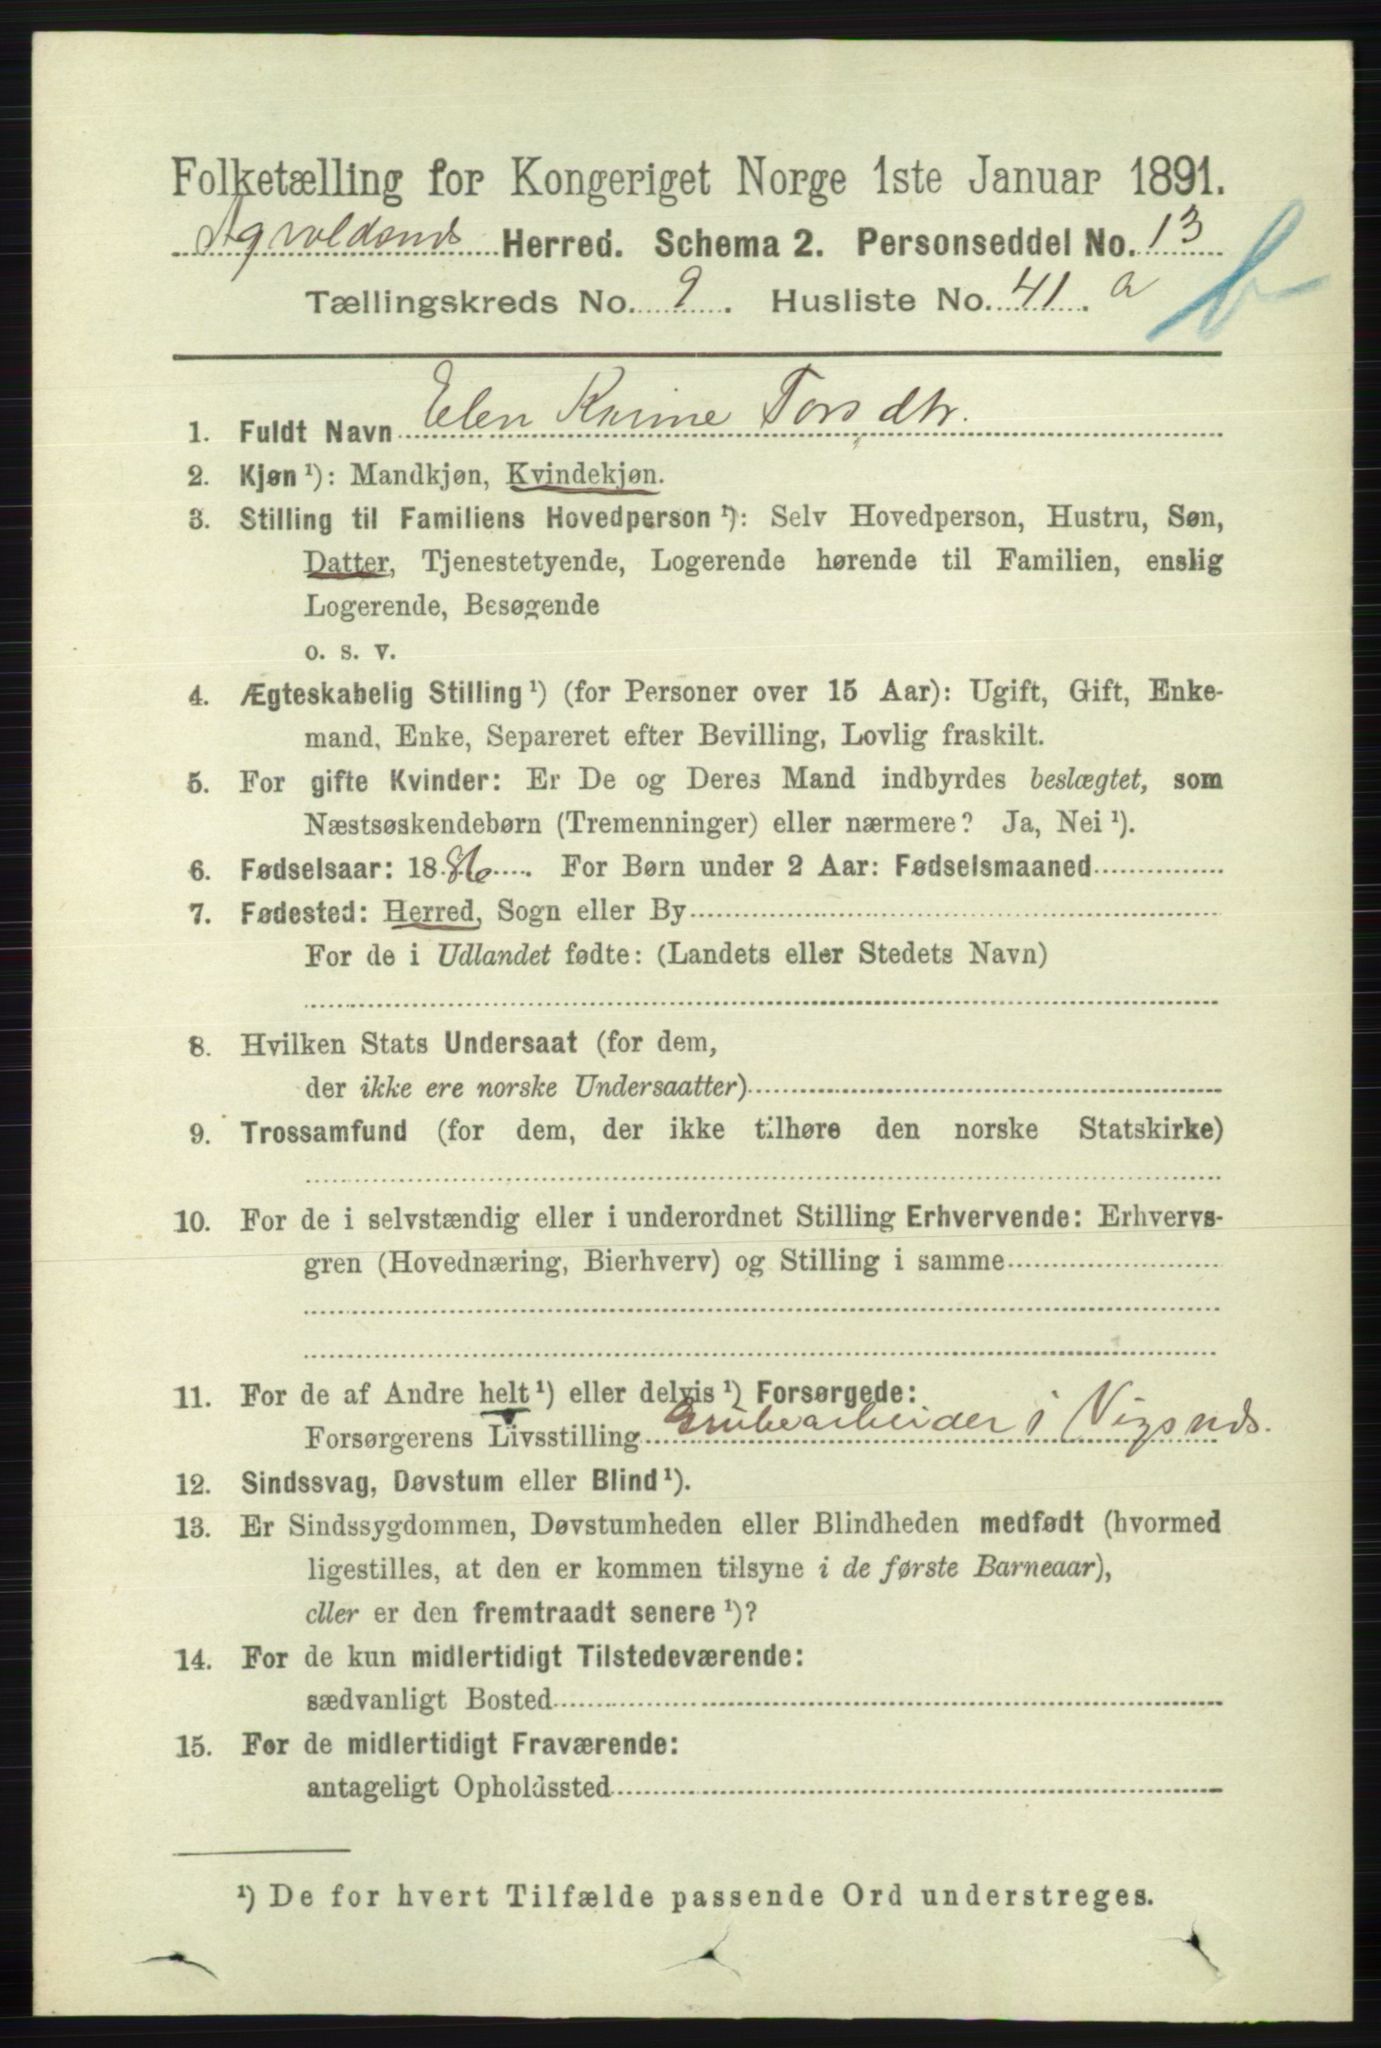 Folketælling for Kongeriget Norge 1ste Januar 1891.
Herred. Schema 2. Personseddel No. 13
Tællingskreds No. 9. Husliste No. 41. a
b
1. Fuldt Navn Elen Karine Torsdtr.
2. Kjøn ¹): Mandkjøn, Kvindekjøn.
3. Stilling til Familiens Hovedperson ¹): Selv Hovedperson, Hustru, Søn,
Datter, Tjenestetyende, Logerende hørende til Familien, enslig
Logerende, Besøgende
o. s. v.
4. Ægteskabelig Stilling ¹) (for Personer over 15 Aar): Ugift, Gift, Enke-
mand, Enke, Separeret efter Bevilling, Lovlig fraskilt.
5. For gifte Kvinder: Er De og Deres Mand indbyrdes beslægtet, som
Næstsøskendebørn (Tremenninger) eller nærmere? Ja, Nei ¹).
6. Fødselsaar: 1886. For Børn under 2 Aar: Fødselsmaaned
7. Fødested: Herred, Sogn eller By
For de i Udlandet fødte: (Landets eller Stedets Navn)
8. Hvilken Stats Undersaat (for dem,
der ikke ere norske Undersaatter)
9. Trossamfund (for dem, der ikke tilhøre den norske Statskirke)
10. For de i selvstændig eller i underordnet Stilling Erhvervende: Erhvervs-
gren (Hovednæring, Bierhverv) og Stilling i samme
11. For de af Andre helt ¹) eller delvis ¹) Forsørgede:
Forsørgerens Livsstilling Grubearbeider i Vigsnds.
12. Sindssvag, Døvstum eller Blind ¹).
13. Er Sindssygdommen, Døvstumheden eller Blindheden medfødt (hvormed
ligestilles, at den er kommen tilsyne i de første Barneaar),
eller er den fremtraadt senere ¹)?
14. For de kun midlertidigt Tilstedeværende:
sædvanligt Bosted
15. For de midlertidigt Fraværende:
antageligt Opholdssted
¹) De for hvert Tilfælde passende Ord understreges.